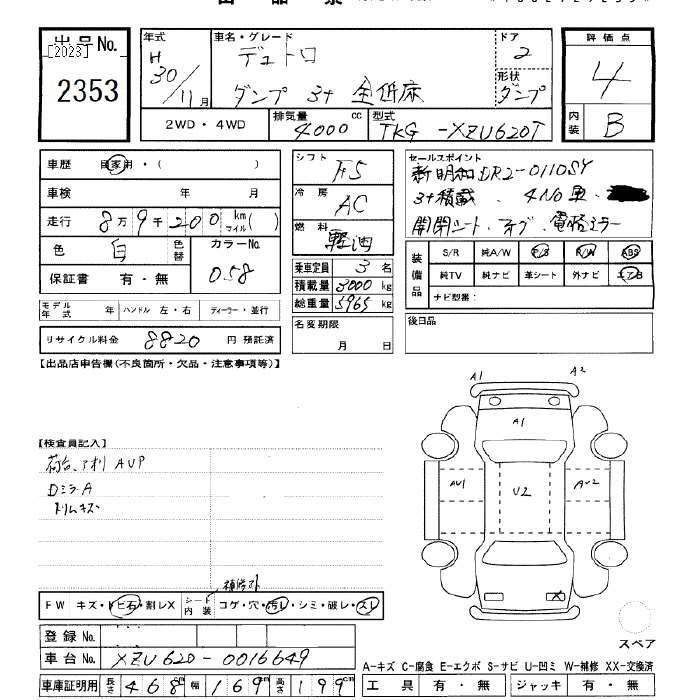 出品No. [2023] 2353
年式 H 30/11月
車名・グレード デュトロ
ダンプ 3t 全低床
ドア 2
形状 ダンプ
評価点 4
内装 B
2WD・4WD
排気量 4000cc
型式 TKG-XZU620T
車歴 自家用・( )
車検 年 月
走行 8万9千200km マイル( )
色 白 色替 カラーNo. 058
保証書 有・無
モデル年式 年 ハンドル 左・右 ディーラー・並行
リサイクル料金 8820 円 預託済
シフト F5
冷房 AC
燃料 軽油
乗車定員 3名
積載量 3000kg
総重量 5965kg
名変期限 月 日
セールスポイント
新明和 DR2-0110SY
3t積載、4NO車、
開閉シート、 電格ミラー
装備品 S/R 純A/W P/S P/W ABS
純TV 純ナビ 革シート 外ナビ エアB
ナビ型番:
後日品
【出品店申告欄(不良箇所・欠品・注意事項等)】
【検査員記入】
荷台、アオリ AUP
Dミラ-A
トリムキズ
A1 A2
A1
AU1 U2 AU2
X
スペア
補修アト
FW キズ・トビ石・割レX シート内装 コゲ・穴・汚レ・シミ・破レ・スレ
登録No.
車台No. XZU620-0016649
A-キズ C-腐食 E-エクボ S-サビ U-凹ミ W-補修 XX-交換済
車庫証明用 長さ 468cm 幅 169cm 高さ 199cm
工具 有・無 ジャッキ 有・無